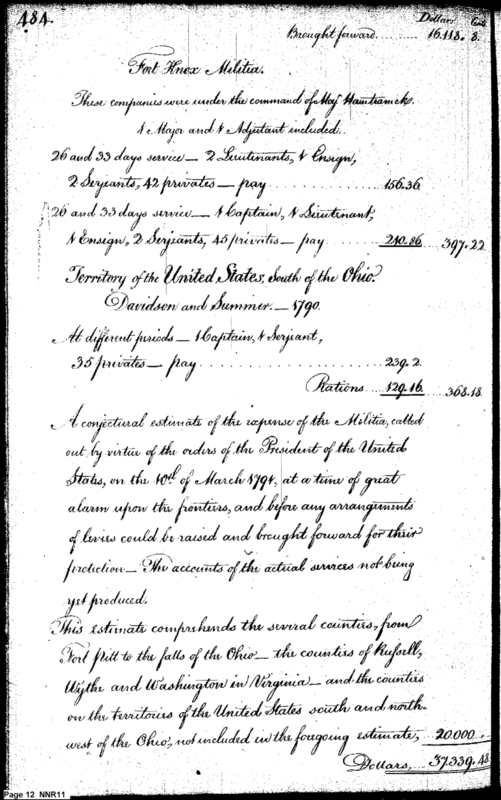 484.
Dollars. Cents
Brought forward......... 16.118. 8.
Fort Knox Militia.
These companies were under the command of Majr. Hamtramck.
1 Major and 1 Adjutant included.
26 and 33 days service — 2 Lieutenants, 1 Ensign,
2 Serjeants, 42 privates — pay............156.36
26 and 33 days service — 1 Captain, 1 Lieutenant,
1 Ensign, 2 Serjeants, 45 privates — pay........240.86 397.22
Territory of the United States, South of the Ohio.
Davidson and Sumner. — 1790.
At different periods — 1 Captain, 1 Serjeant,
35 privates — pay.................239.2.
Rations....129.16. 368.18.
A conjectural estimate of the expense of the Militia, called
out by virtue of the orders of the President of the United
States, on the 10th of March 1791, at a time of great
alarm upon the frontiers, and before any arrangements
of levies could be raised and brought forward for their
protection — The accounts of the actual services not being
yet produced.
This estimate comprehends the several counties, from
Fort Pitt to the falls of the Ohio — the counties of Russell,
Wythe and Washington in Virginia — and the counties
on the territories of the United States south and north-
west of the Ohio, not included in the foregoing estimate, 20.000.
Dollars, 37.339.48
Page 12 NNR11